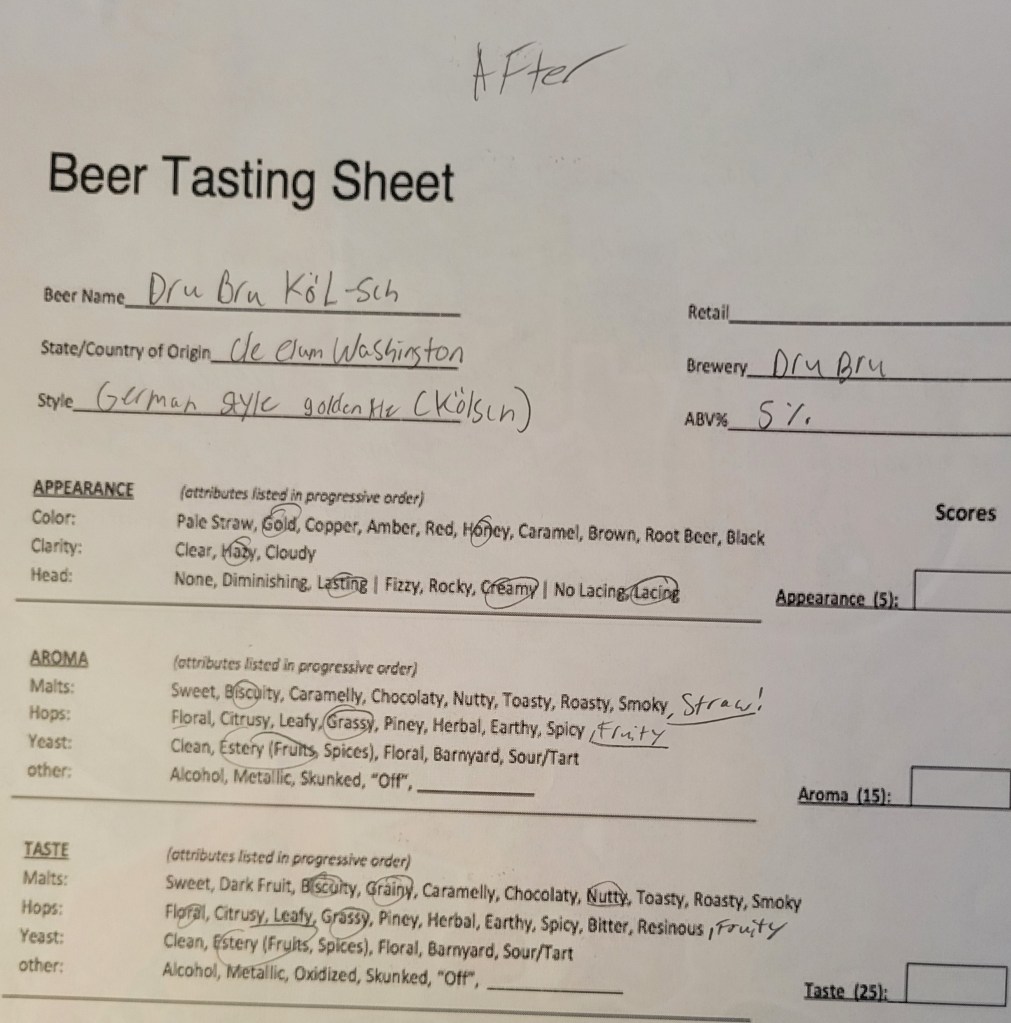 AFter
Beer Tasting Sheet
Beer Name Dru Bru KöL-Sch
Retail
State/Country of Origin Cle elum Washington
Brewery Dru Bru
Style German style golden Ale (Kölsch)
ABV% 5%
APPEARANCE (attributes listed in progressive order)
Scores
Color: Pale Straw, Gold, Copper, Amber, Red, Honey, Caramel, Brown, Root Beer, Black
Clarity: Clear, Hazy, Cloudy
Head: None, Diminishing, Lasting | Fizzy, Rocky, Creamy | No Lacing, Lacing
Appearance (5):
AROMA (attributes listed in progressive order)
Malts: Sweet, Biscuity, Caramelly, Chocolaty, Nutty, Toasty, Roasty, Smoky, Straw!
Hops: Floral, Citrusy, Leafy, Grassy, Piney, Herbal, Earthy, Spicy, Fruity
Yeast: Clean, Estery (Fruits, Spices), Floral, Barnyard, Sour/Tart
other: Alcohol, Metallic, Skunked, "Off",
Aroma (15):
TASTE (attributes listed in progressive order)
Malts: Sweet, Dark Fruit, Biscuity, Grainy, Caramelly, Chocolaty, Nutty, Toasty, Roasty, Smoky
Hops: Floral, Citrusy, Leafy, Grassy, Piney, Herbal, Earthy, Spicy, Bitter, Resinous, Fruity
Yeast: Clean, Estery (Fruits, Spices), Floral, Barnyard, Sour/Tart
other: Alcohol, Metallic, Oxidized, Skunked, "Off",
Taste (25):